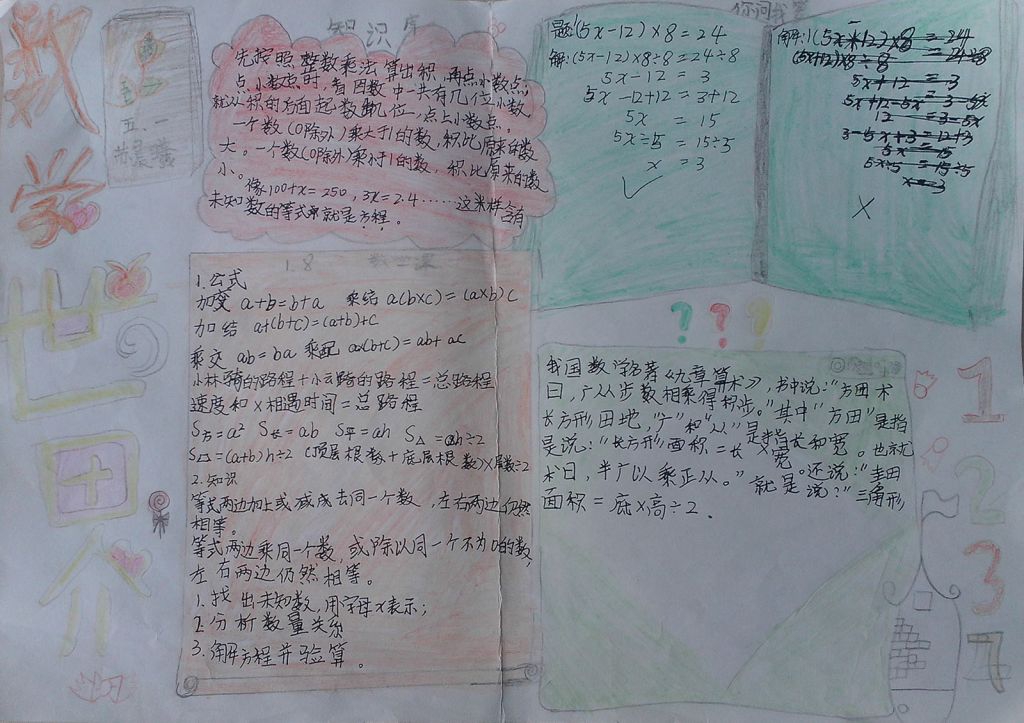 数学世界
五、一
知识库
先按照整数乘法算出积,再点小数点,
点小数点时,看因数中一共有几位小数
就从积的右面起数出几位,点上小数点。
一个数(0除外)乘大于1的数,积比原来的数
大。一个数(0除外)乘小于1的数,积比原来的数
小。
像100+x=250,3x=2.4……这样含有
未知数的等式就是方程。
1.公式
加交 a+b=b+a 乘结 a(b×c)=(a×b)c
加结 a+(b+c)=(a+b)+c
乘交 ab=ba 乘配 a×(b+c)=ab+ac
小林骑的路程+小云骑的路程=总路程
速度和×相遇时间=总路程
S方=a² S长=ab S平=ah S△=ah÷2
(a+b)h÷2 (顶层根数+底层根数)×层数÷2
2.知识
等式两边加上或减去同一个数,左右两边仍然
相等。
等式两边乘同一个数,或除以同一个不为0的数,
左右两边仍然相等。
1.找出未知数,用字母x表示;
2.分析数量关系
3.解方程并验算。
你问我答
题:(5x-12)×8=24
解:(5x-12)×8÷8=24÷8
5x-12=3
5x-12+12=3+12
5x=15
5x÷5=15÷5
x=3
✓
解:(5x+12)×8=24
(5x+12)×8÷8=24÷8
5x+12=3
5x+12-5x=3-5x
12=3-5x
5x=15
5x÷5=15÷5
x=3
×
? ? ?
我国数学名著《九章算术》,书中说:“方田术
曰,广从步数相乘得积步。”其中“方田”是指
长方形田地,“广”和“从”是指长和宽。也就
是说:“长方形面积=长×宽。还说:“圭田
术曰,半广以乘正从。”就是说:“三角形
面积=底×高÷2.
1
2
3